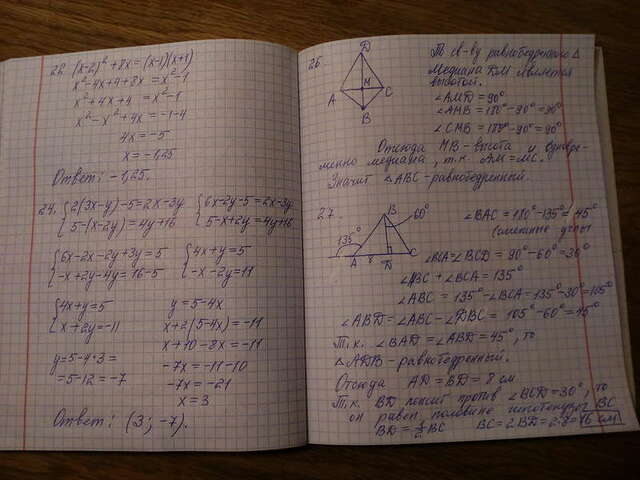 22. (x-2)² + 8x = (x-1)(x+1)
x²-4x+4+8x = x²-1
x²+4x+4 = x²-1
x²-x²+4x = -1-4
4x = -5
x = -1,25
Ответ: -1,25.
24. {2(3x-y)-5=2x-3y {6x-2y-5=2x-3y
{5-(x-2y)=4y+16 {5-x+2y=4y+16
{6x-2x-2y+3y=5 {4x+y=5
{-x+2y-4y=16-5 {-x-2y=11
{4x+y=5 y=5-4x
{x+2y=-11 x+2(5-4x)=-11
x+10-8x=-11
y=5-4*3= -7x=-11-10
=5-12=-7 -7x=-21
x=3
Ответ: (3; -7).
26.
D
M
A C
B
По св-ву равнобедренного Δ
Медиана DM является
высотой.
∠AMD=90°
∠AMB=180°-90°=90°
∠CMB=180°-90°=90°
Отсюда MB-высота и одновре-
менно медиана, т.к. AM=MC.
Значит ΔABC-равнобедренный.
27.
B
60°
135°
A 8 D C
∠BAC=180°-135°=45°
(смежные углы
∠BCA=∠BCD=90°-60°=30°
∠ABC+∠BCA=135°
∠ABC=135°-∠BCA=135-30°=105°
∠ABD=∠ABC-∠DBC=105°-60°=45°
Т.к. ∠BAD=∠ABD=45°, то
ΔADB-равнобедренный.
Отсюда AD=BD=8 см
Т.к. BD лежит против ∠BCD=30°, то
он равен половине гипотенузы BC
BD=½BC BC=2BD=2·8=16 см